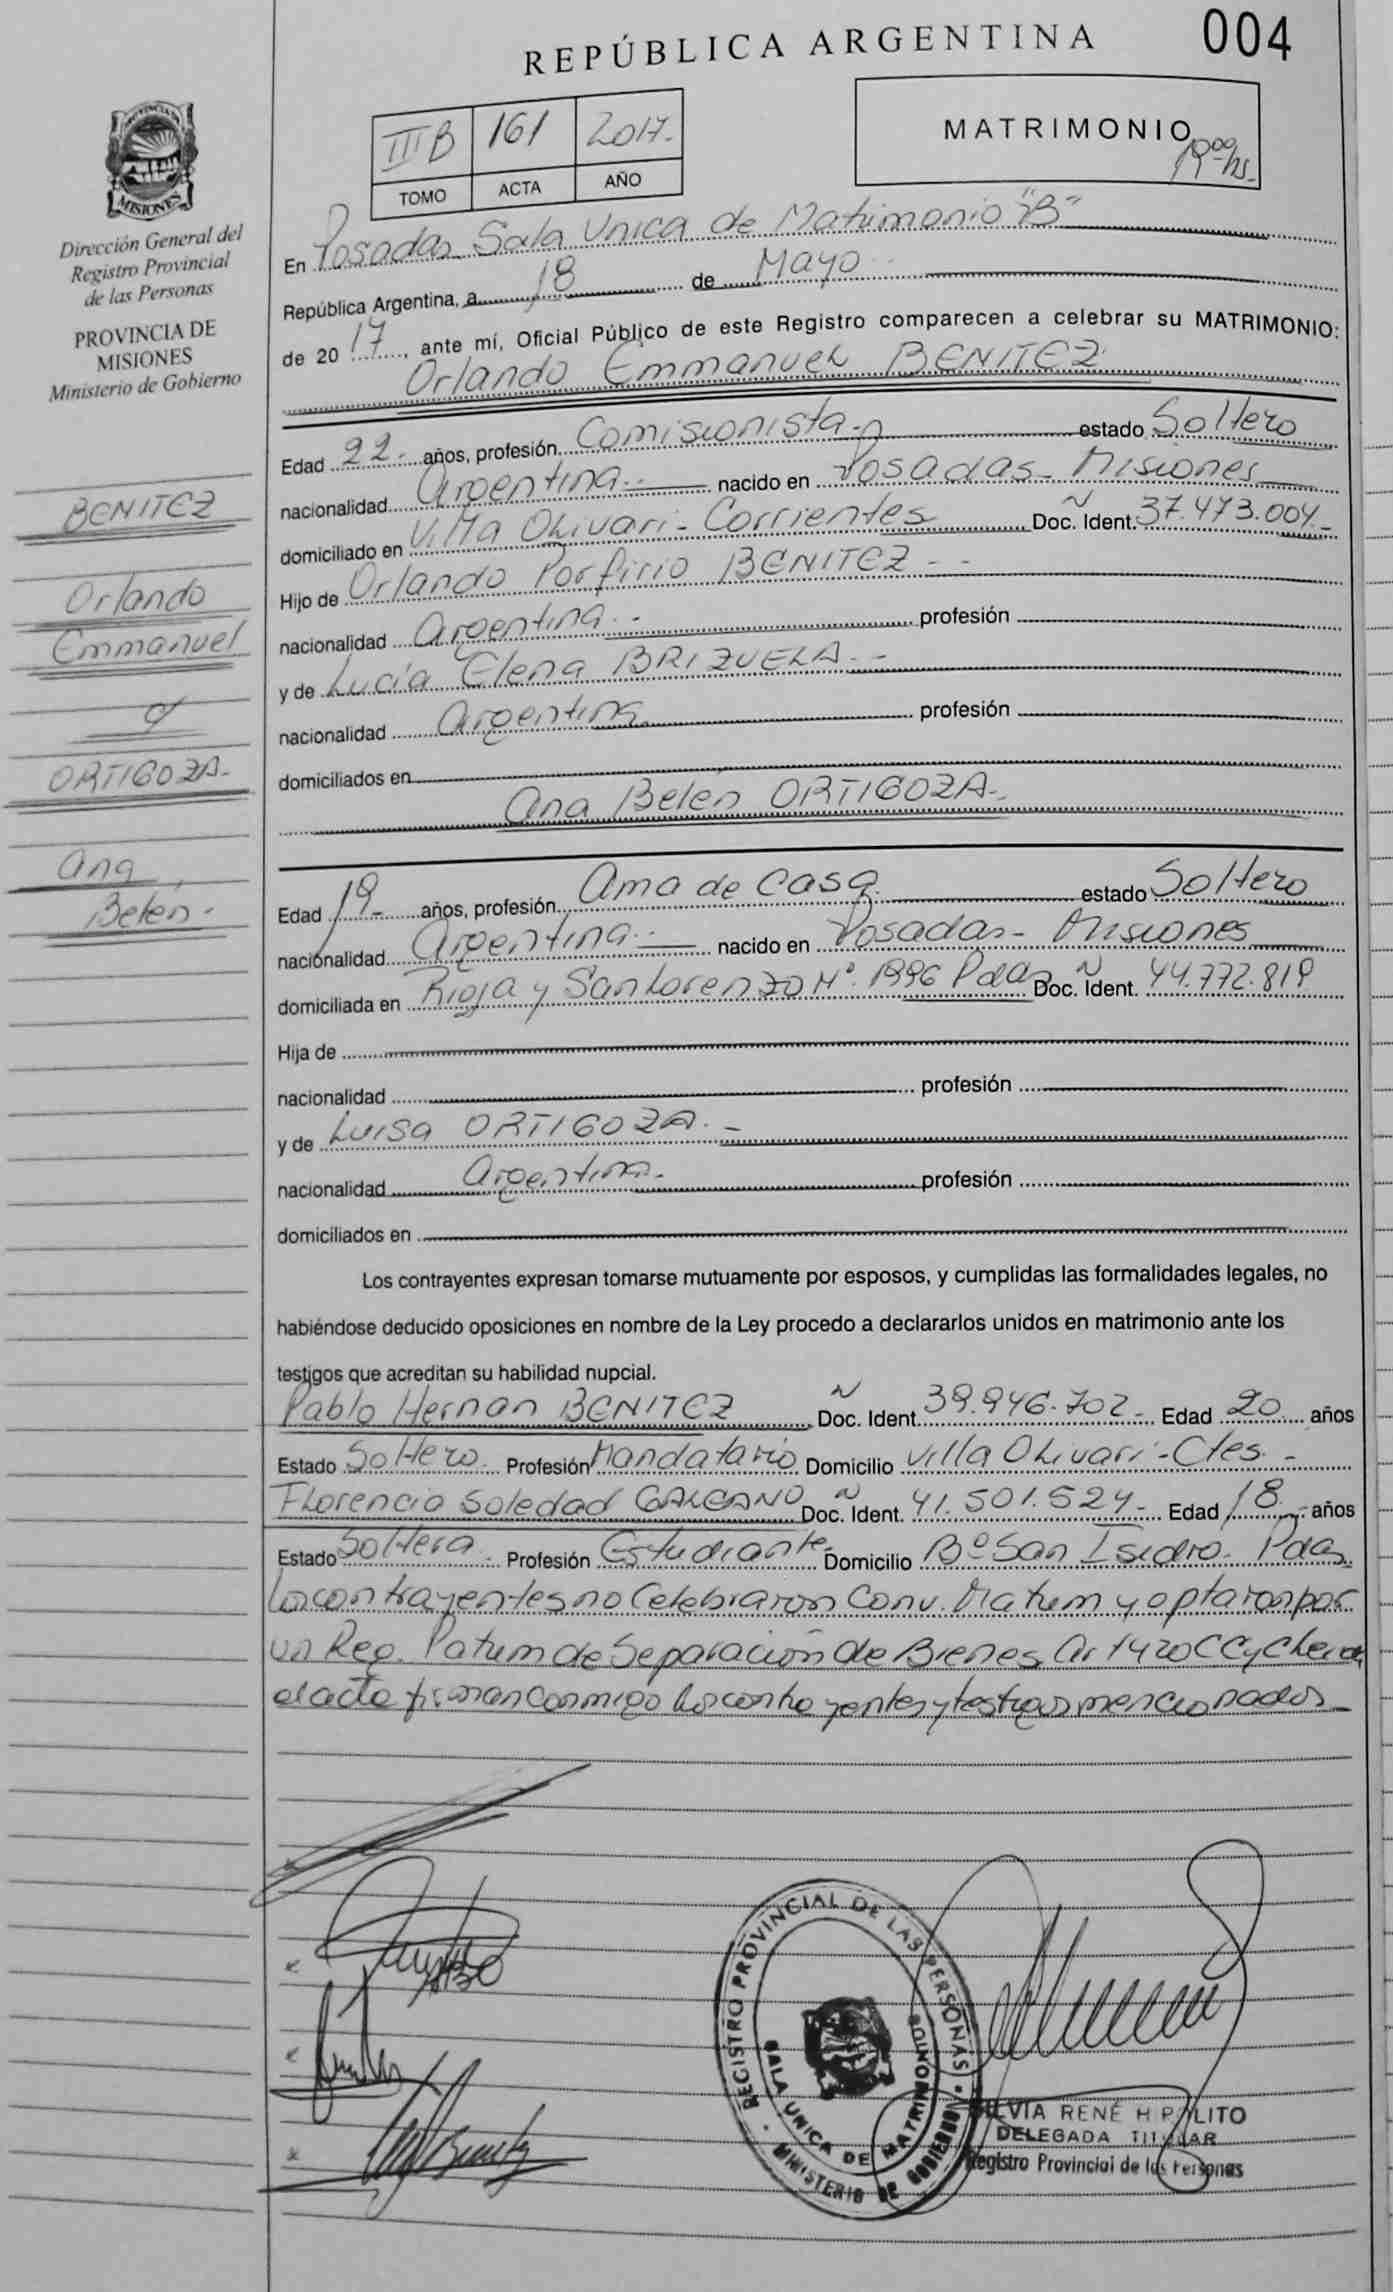 REPÚBLICA ARGENTINA
004
PROVINCIA DE
MISIONES
Dirección General del
Registro Provincial
de las Personas
PROVINCIA DE
MISIONES
Ministerio de Gobierno
III B 161 2017.
TOMO ACTA AÑO
MATRIMONIO
19 00 hs.
En Posadas Sala Unica de Matrimonio "B"
República Argentina, a 18 de Mayo
de 20 17, ante mí, Oficial Público de este Registro comparecen a celebrar su MATRIMONIO:
Orlando Emmanuel BENITEZ
Edad 22 años, profesión Comisionista estado Soltero
nacionalidad Argentina nacido en Posadas - Misiones
domiciliado en Villa Olivari - Corrientes Doc. Ident. 37.473.004
Hijo de Orlando Porfirio BENITEZ
nacionalidad Argentina profesión
y de Lucia Elena BRIZUELA
nacionalidad Argentina profesión
domiciliados en
Ana Belen ORTIGOZA
BENITEZ
Orlando
Emmanuel
y
ORTIGOZA
Ana
Belen
Edad 19 años, profesión Ama de Casa estado Soltero
nacionalidad Argentina nacido en Posadas - Misiones
domiciliada en Rioja y San Lorenzo Nº 1996 Pdas Doc. Ident. 44.772.819
Hija de
nacionalidad profesión
y de Luisa ORTIGOZA
nacionalidad Argentina profesión
domiciliados en
Los contrayentes expresan tomarse mutuamente por esposos, y cumplidas las formalidades legales, no
habiéndose deducido oposiciones en nombre de la Ley procedo a declararlos unidos en matrimonio ante los
testigos que acreditan su habilidad nupcial.
Pablo Hernan BENITEZ Doc. Ident. 39.946.702 Edad 20 años
Estado Soltero Profesión Mandatario Domicilio Villa Olivari - Ctes
Florencia Soledad GALEANO Doc. Ident. 41.501.524 Edad 18 años
Estado Soltera Profesión Estudiante Domicilio Bº San Isidro. Pdas
Los contrayentes no Celebraron Conv. Matrim y optaron por
un Reg. Patrim de Separación de Bienes Ar 1420 CCyC leida
el acta firman conmigo los contrayentes y testigos mencionados
REGISTRO PROVINCIAL DE LAS PERSONAS
SALA UNICA DE MATRIMONIOS
MINISTERIO DE GOBIERNO
SILVIA RENÉ HIPÓLITO
DELEGADA TITULAR
Registro Provincial de las Personas